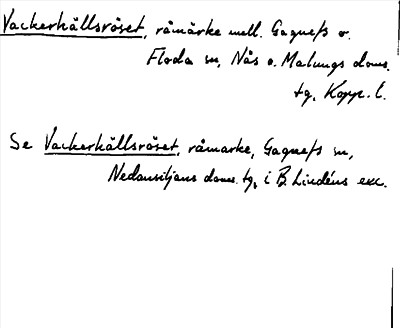 Vackerkällsröset, råmärke mell. Gagnefs o.
Floda sn, Nås o. Malungs doms.
tg, Kopp. l.
Se Vackerkällsröset, råmärke, Gagnefs sn,
Nedansiljans doms. tg, i B. Lindéns exc.